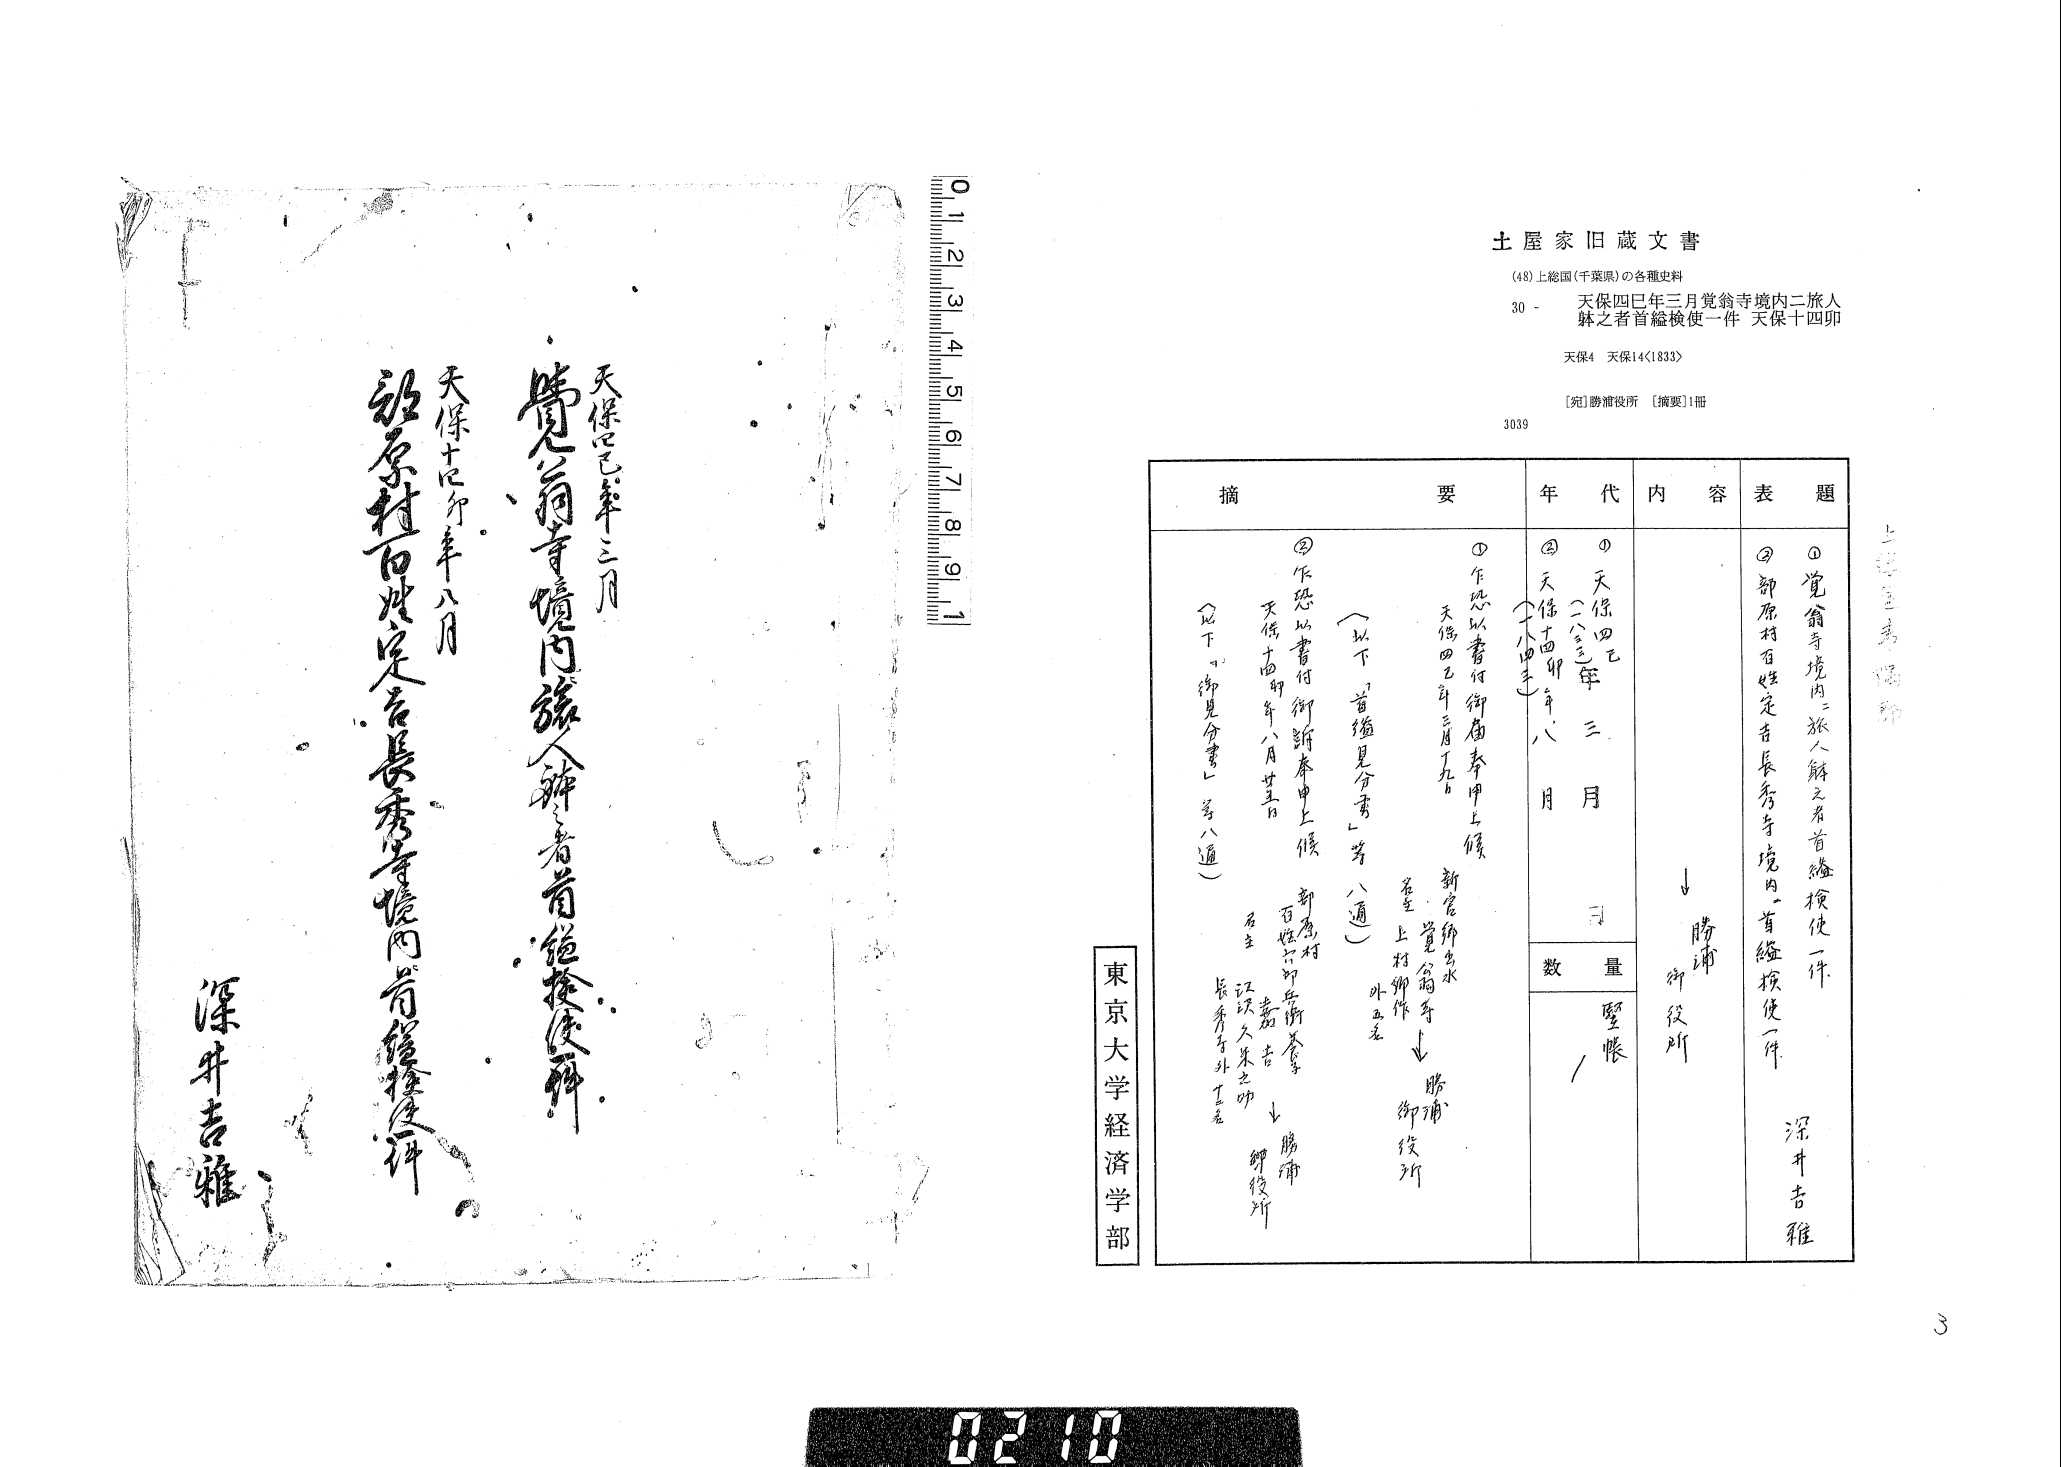 土屋家旧蔵文書
(48)上総国(千葉県)の各種史料
30 - 天保四巳年三月覚翁寺境内ニ旅人
躰之者首縊検使一件 天保十四卯
天保4 天保14<1833>
[宛]勝浦役所 [摘要]1冊
3039
表題
① 覚翁寺境内ニ旅人躰之者首縊検使一件
② 部原村百姓定吉長秀寺境内ニ首縊検使一件
深井吉雅
内容
↓ 勝浦
御役所
年代
① 天保四巳年三月
(一八三三)
② 天保十四卯年八月
(一八四三)
日
数量
竪帳
1
摘要
① 乍恐以書付御届奉申上候
天保四巳年三月十九日
新官郷出水
覚翁寺
名主 上村郷作
外五名
↓ 勝浦
御役所
(以下「首縊見分書」等八通)
② 乍恐以書付御訴奉申上候
天保十四卯年八月廿五日
部原村
百姓六郎兵衛養子
嘉吉
名主 江沢久米之助
長秀寺外十二名
↓ 勝浦
御役所
(以下「御見分書」等八通)
東京大学経済学部
0 1 2 3 4 5 6 7 8 9 1
天保四巳年三月
覺翁寺境内旅人躰之者首縊撿使一件
天保十四卯年八月
部原村百姓定吉長秀寺境内首縊撿使一件
深井吉雅
3
0210